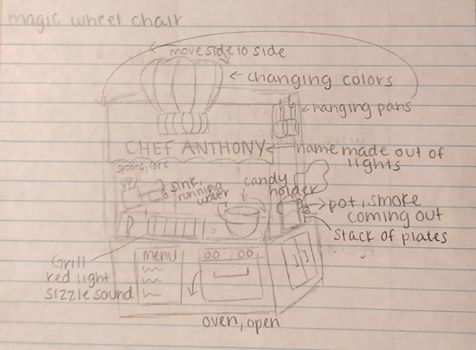 magic wheel chair
move side to side
changing colors
hanging pans
CHEF ANTHONY
name made out of
lights
sink,
running
water
candy
holder
pot, smoke
coming out
stack of plates
Grill
red light
sizzle sound
menu
oven, open